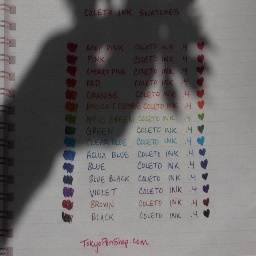 COLETO INK SWATCHES
BABY PINK COLETO INK .4
PINK COLETO INK .4
CHERRY PINK COLETO INK .4
RED COLETO INK .4
ORANGE COLETO INK .4
APRICOT ORANGE COLETO INK .4
APPLE GREEN COLETO INK .4
GREEN COLETO INK .4
CLEAR BLUE COLETO INK .4
AQUA BLUE COLETO INK .4
BLUE COLETO INK .4
BLUE BLACK COLETO INK .4
VIOLET COLETO INK .4
BROWN COLETO INK .4
BLACK COLETO INK .4
TokyoPenShop.com